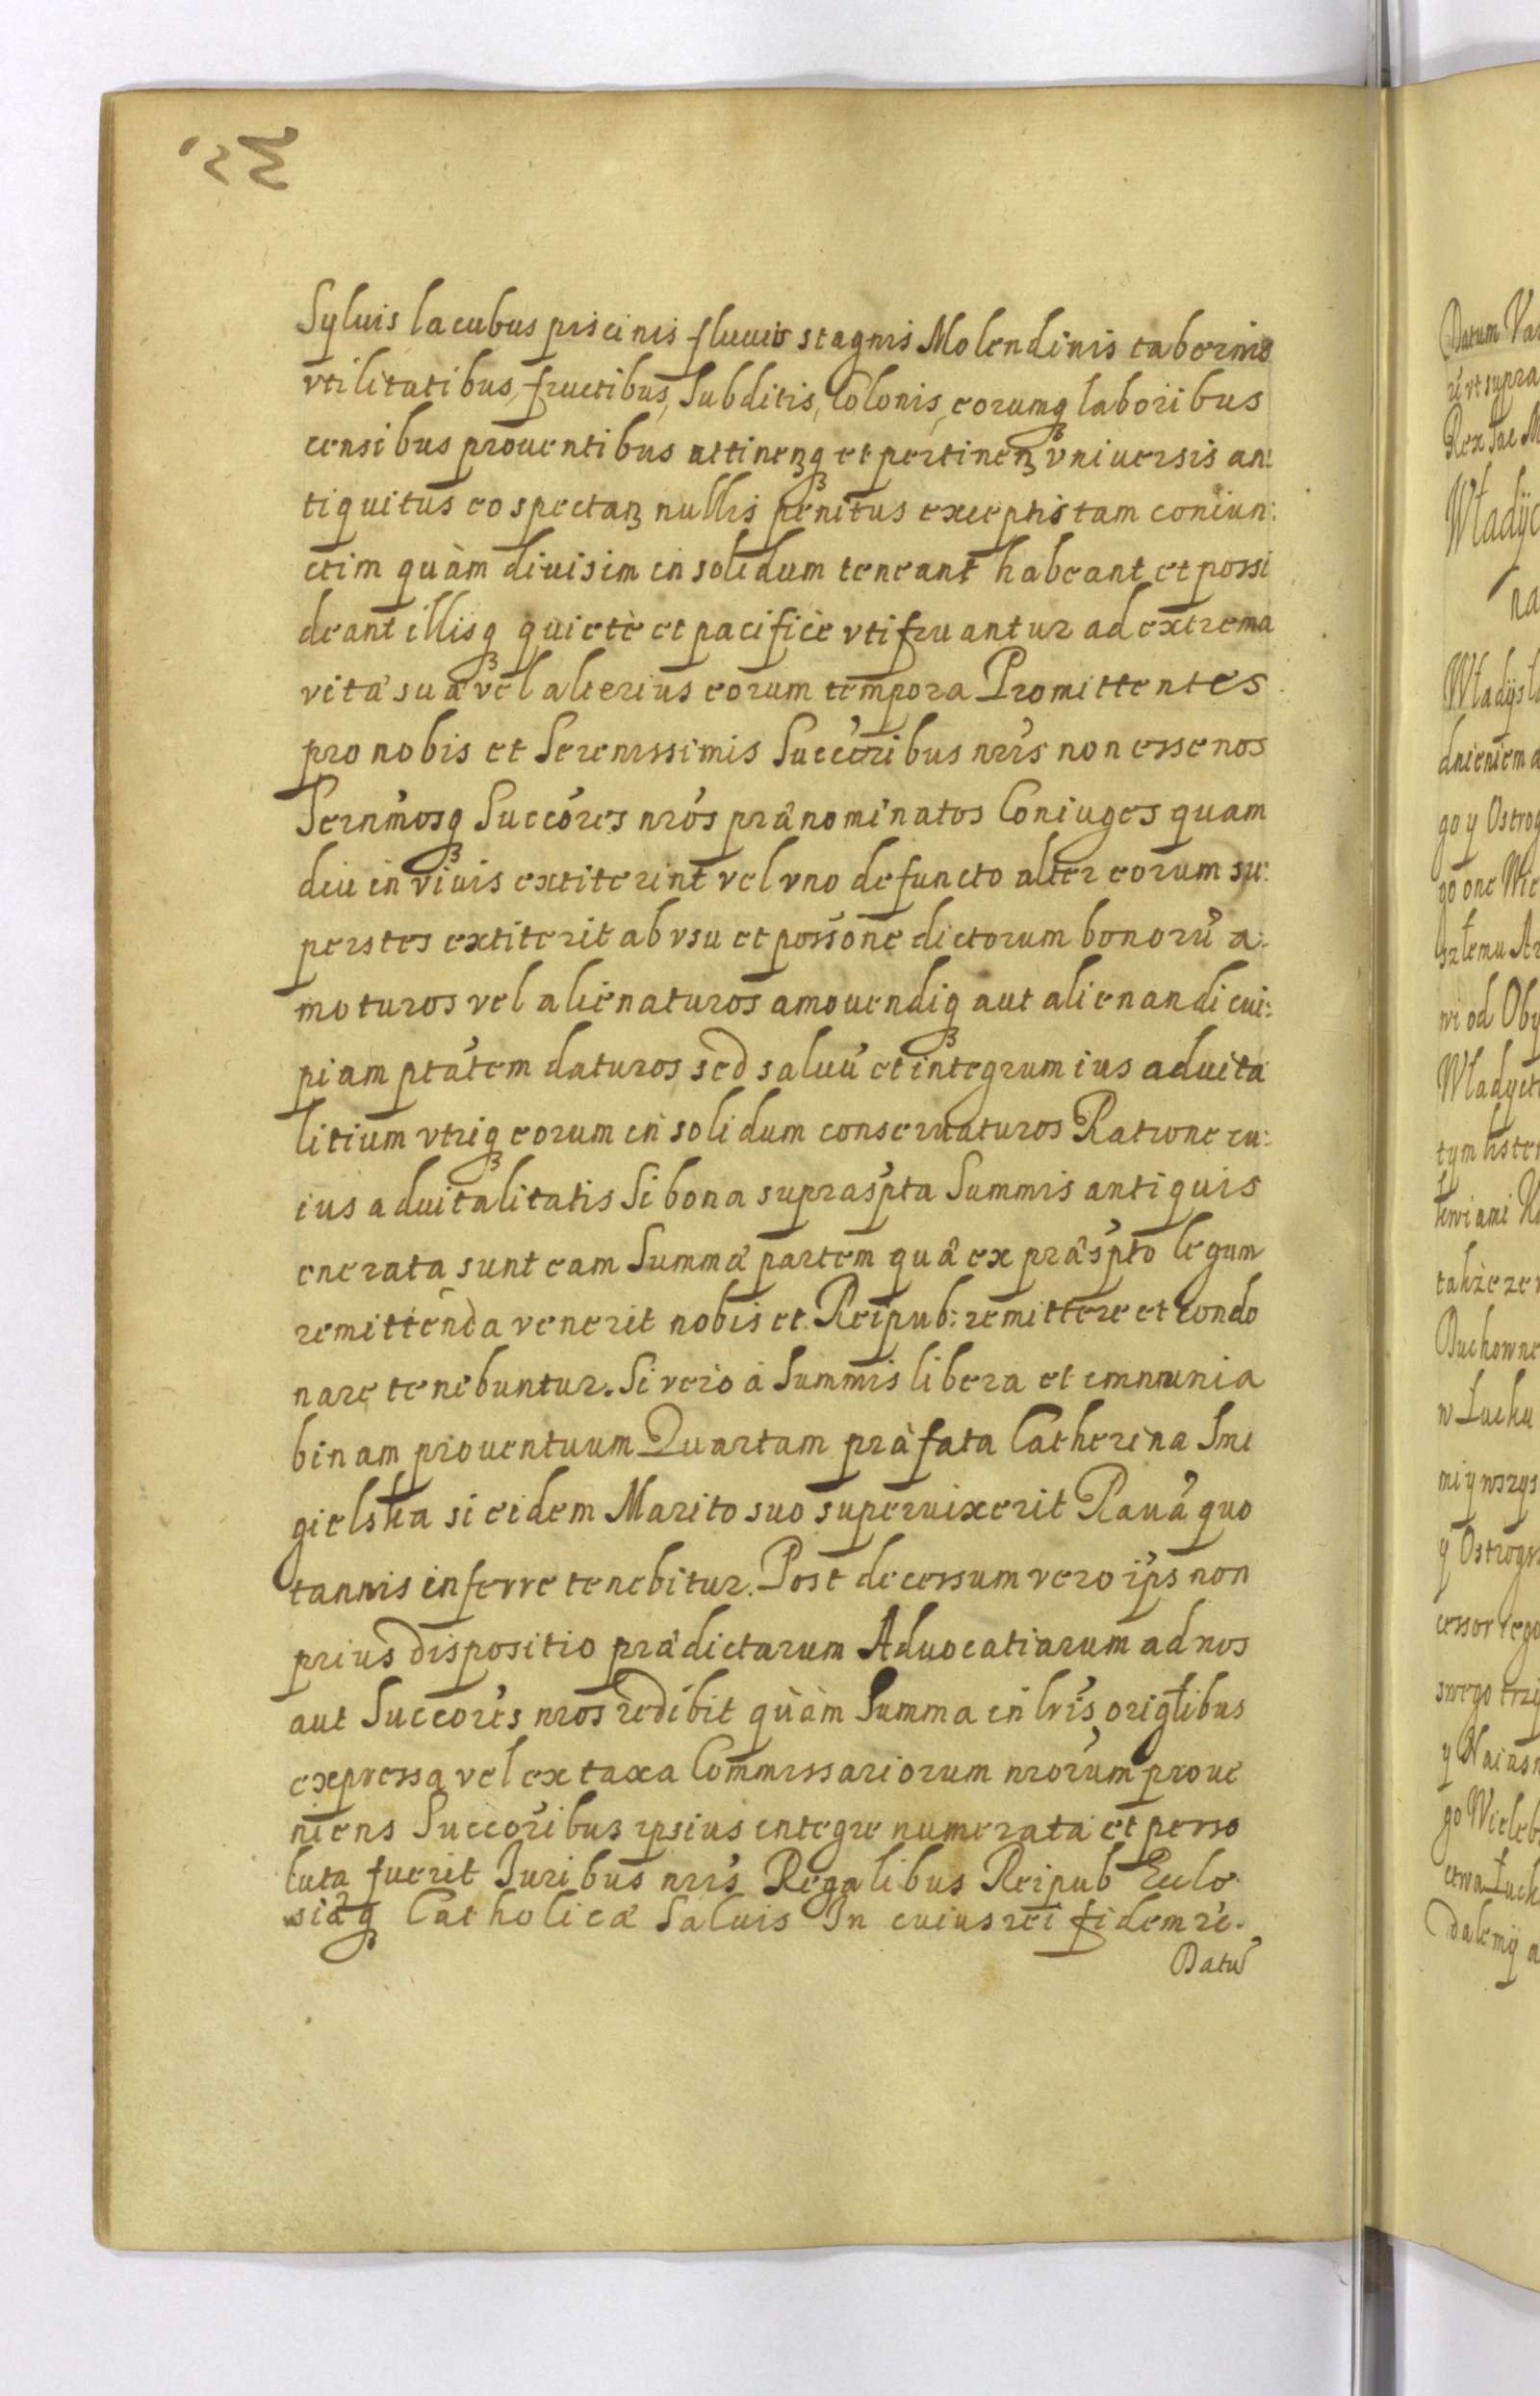 Syluis lacubus piscinis fluuiis stagnis Molendinis tabernis
vtilitatibus, fructibus, Subditis, Colonis, eorumqꝫ laboribus
censibus prouentibus attinenꝫqꝫ et pertinenꝫ vniuersis an:
tiquitus eo spectanꝫ nullis penitus exceptis tam coniun:
ctim quàm diuisim in solidum teneant habeant et possi
deant illisqꝫ quietè et pacificè vtifruantur ad extrema
vitæ suæ vel alterius eorum tempora Promittentes
pro nobis et Serenissimis Succoribus nris non esse nos
Sernmosqꝫ Succores nros prænominatos Coniuges quam
diu in viuis extiterint vel vno defuncto alter eorum su:
perstes extiterit ab vsu et possone dictorum bonorū a:
moturos vel alienaturos amouendiqꝫ aut alienandi cui:
piam ptatem daturos sed saluū et integrum ius aduita
litium vtriqꝫ eorum in solidum conseruaturos Ratione cu:
ius aduitalitatis Si bona suprasp̃ta Summis antiquis
onerata sunt eam Summæ partem quæ ex præsp̃to legum
remittenda venerit nobis et Reipub: remittere et condo
nare tenebuntur. Si vero à Summis libera et immunia
binam prouentuum Quartam præfata Catherina Smi
gielska si eidem Marito suo superuixerit Rauæ quo
tannis inferre tenebitur. Post decessum vero ips non
prius dispositio prædictarum Aduocatiarum ad nos
aut Succores nros redibit quàm Summa in lris origlibus
expressa vel ex taxa Commissariorum nrorum proue
niens Succoribus ipsius integre numerata et perso
luta fuerit Iuribus nris Regalibus Reipub Eccle
siæqꝫ Catholicæ Saluis In cuius rei fidem re.
Datū
Datum Va
ri vt supra
Rex
na
dnieniem
go y Ostrog
go one Wie
wi od Oby
tym listem
także ze
Duchowne
w Łucku
y Ostrogs
cessor iego
swego
go Wieleb